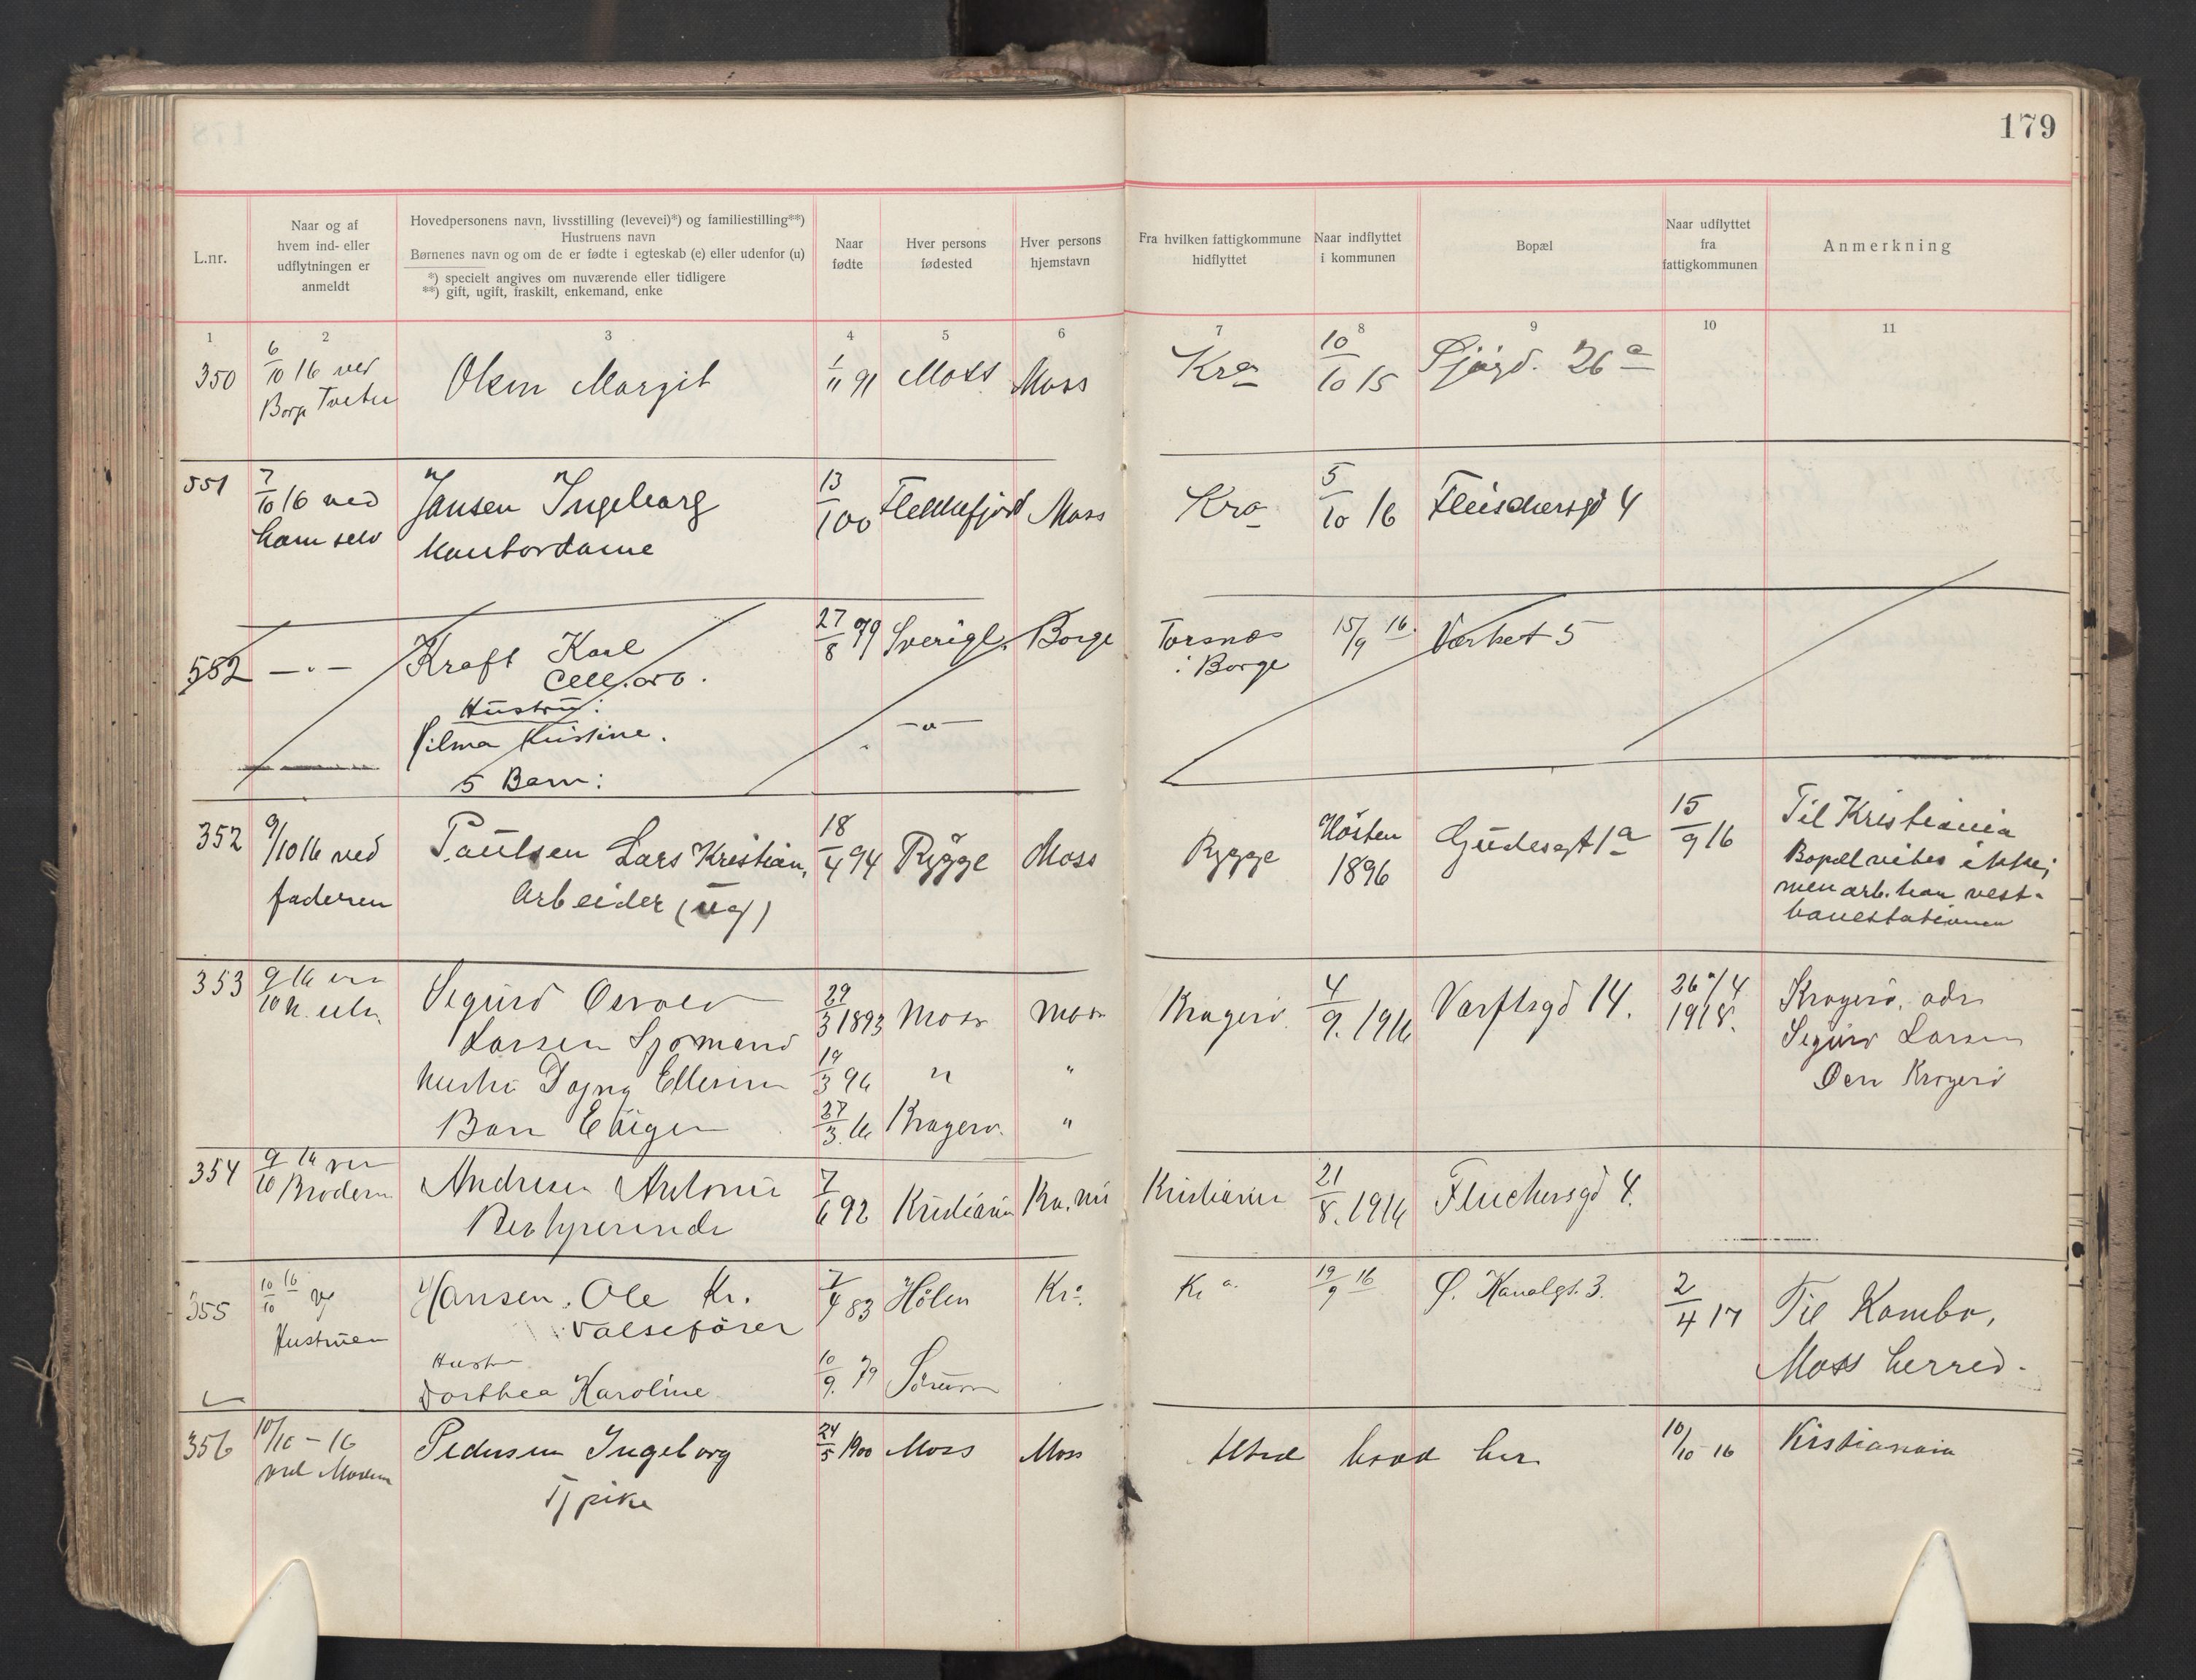 179
L.nr.
Naar og af
hvem ind- eller
udflytningen er
anmeldt
Hovedpersonens navn, livsstilling (levevei)*) og familiestilling**)
Hustruens navn
Børnenes navn og om de er fødte i egteskab (e) eller udenfor (u)
*) specielt angives om nuværende eller tidligere
**) gift, ugift, fraskilt, enkemand, enke
Naar
fødte
Hver persons
fødested
Hver persons
hjemstavn
Fra hvilken fattigkommune
hidflyttet
Naar indflyttet
i kommunen
Bopæl
Naar udflyttet
fra
fattigkommunen
Anmerkning
1 2 3 4 5 6 7 8 9 10 11
350 6/10 16 ved Olsen Margit 1/11 91 Moss Moss Kra 10/10 15 26a
Borg Tveter
551 7/10 16 ved Jansen Ingeborg 13/1 00 Flekkefjord Moss Kra 5/10 16 Fleischersgd 4
ham selv Kontordame
552 — " — Kraft Karl 27/8 79 Sverige Borge Torsnæs 15/9 16. Værket 5
Cell. arb. i Borge
Hustru:
Hilma Kristine. — " —
5 Barn:
352 9/10 16 ved Paulsen Lars Kristian, 18/4 94 Rygge Moss Rygge Høsten Gudesgt 1a 15/9 16 Til Kristiania
faderen Arbeider (ug) 1896 Bopæl vites ikke;
men arb. paa vest-
banestationen
353 9/10 16 Sigurd Osvald 29/3 1893 Moss Moss Kragerø 4/9. 1916 Værftsgd 14. 26/4 1918. Kragerø, adr.
Larsen Sjømand Sigurd Larsen
Hustru Dagny 19/3 96 " " Øen Kragerø
Barn 27/3. 16 Kragerø. "
354 9/10 16 ved Andresen Antonie 7/6 92 Kristiania Kristiania 21/8. 1916 Fleichersgd 4.
Broderen Bestyrerinde
355 10/10 16 v/ Hansen, Ole Kr. 7/4 83 Hølen Kra. Kra. 19/9 16 Ø. Kanalgt. 3. 2/4 17 Til Kambo,
Hustruen Valsefører Moss herred.
Hustru
Dorthea Karoline 10/9. 79 Sørum
356 10/10 - 16 Pedersen Ingeborg 24/5 1900 Moss Moss Altid boad her 10/10 - 16 Kristiania
ved Moderen Tj pike